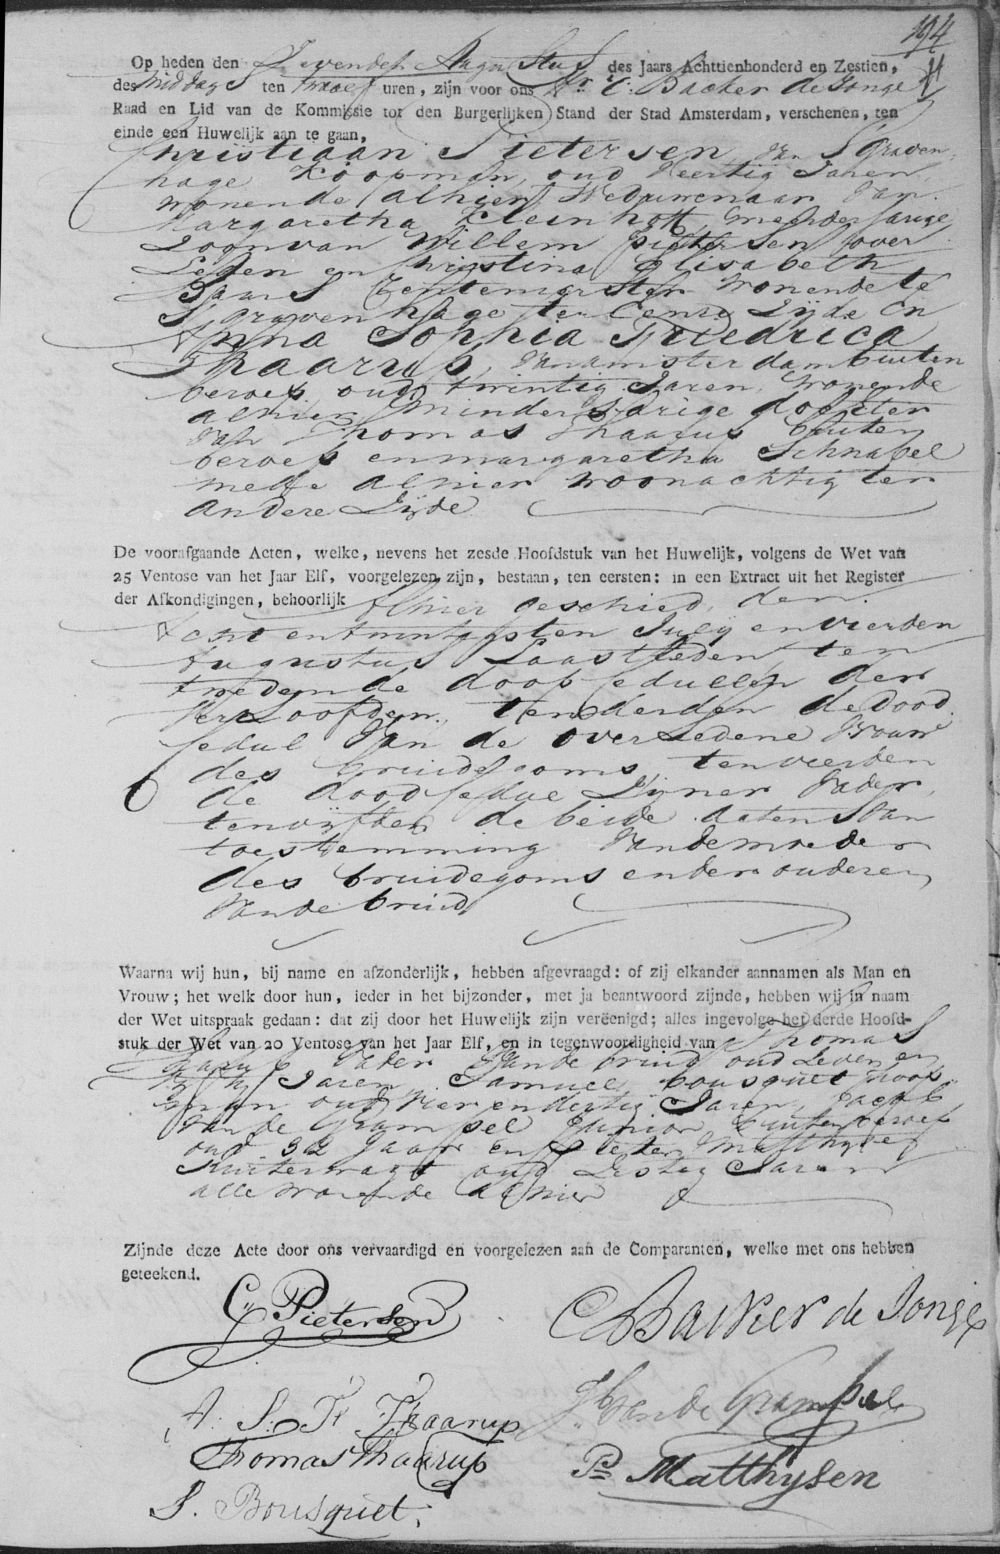 194
Op heden den Zevenden Augustus des Jaars Achttienhonderd en Zestien,
des middags ten twaalf uren, zijn voor ons Mr. C. Backer de Jonge
Raad en Lid van de Kommissie tot den Burgerlijken Stand der Stad Amsterdam, verschenen, ten
einde een Huwelijk aan te gaan,
Christiaan Pietersen van S'Graven
hage Koopman, oud Veertig Jaren,
wonende alhier Weduwenaar van
Margaretha Kleinhott meerderjarige
Zoon van Willem Pietersen over
Leden en Christina Elisabeth
Rentenierster Wonende te
S'gravenhage ter Eenre Zijde En
Anna Sophia Friedrica
Thaarup, van Amsterdam buiten
beroep oud twintig Jaren, Wonende
alhier Minderjarige dochter
van Thomas Thaarup buiten
beroep en Margaretha Schnabel
mede alhier woonachtig ter
andere Zijde
De voorafgaande Acten, welke, nevens het zesde Hoofdstuk van het Huwelijk, volgens de Wet van
25 Ventose van het Jaar Elf, voorgelezen zijn, bestaan, ten eersten: in een Extract uit het Register
der Afkondigingen, behoorlijk alhier geschied, den
Acht en twintigsten July en vierden
Augustus Laastleden ten
tweden de doop cedullen der
Verloofden, ten derden de dood
cedul van de overledene Vrouw
des bruidegoms ten vierden
de dood cedul Zijner Vader,
ten vijfden de beide daten van
toestemming van de moeder
des bruidegoms en der ouderen
van de bruid
Waarna wij hun, bij name en afzonderlijk, hebben afgevraagd: of zij elkander aannamen als Man en
Vrouw; het welk door hun, ieder in het bijzonder, met ja beantwoord zijnde, hebben wij in naam
der Wet uitspraak gedaan: dat zij door het Huwelijk zijn vereenigd; alles ingevolge het derde Hoofd-
stuk der Wet van 20 Ventose van het Jaar Elf, en in tegenwoordigheid van Thomas
Thaarup Vader van de bruid oud Zeven en
Jaren Samuel Bousquet Koop
man oud Vier en dertig Jaren, Jacob
van de Grampel Junior buiten beroep
oud 32 Jaar en Pieter Matthysen
oud Zestig Jaren
alle wonende alhier
Zijnde deze Acte door ons vervaardigd en voorgelezen aan de Comparanten, welke met ons hebben
geteekend.
C. Pietersen
C Backer de Jonge
A. S. F. Thaarup
J. van de Grampel
Thomas Thaarup
Pr. Matthysen
S. Bousquet